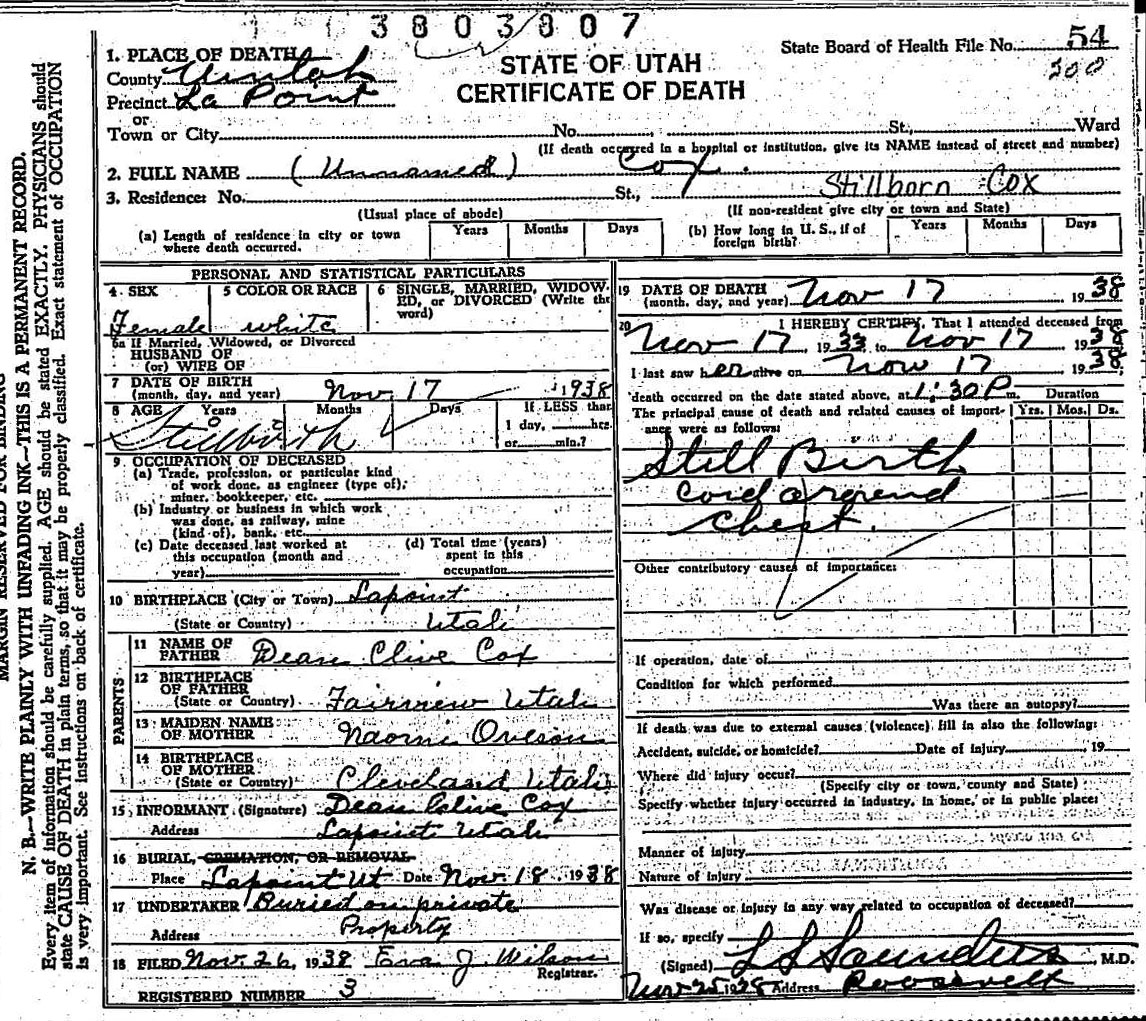 3803807
State Board of Health File No. 54
200
STATE OF UTAH
CERTIFICATE OF DEATH
1. PLACE OF DEATH
County Uintah
Precinct La Point
or
Town or City No. St., Ward
(If death occurred in a hospital or institution, give its NAME instead of street and number)
2. FULL NAME (Unnamed) Cox.
Stillborn Cox
3. Residence: No. St.,
(Usual place of abode) (If non-resident give city or town and State)
(a) Length of residence in city or town where death occurred. Years Months Days
(b) How long in U. S., if of foreign birth? Years Months Days
PERSONAL AND STATISTICAL PARTICULARS
4. SEX 5 COLOR OR RACE 6 SINGLE, MARRIED, WIDOW-
ED, or DIVORCED (Write the
word)
Female white
6a If Married, Widowed, or Divorced
HUSBAND OF
(or) WIFE OF
7 DATE OF BIRTH
(month, day, and year) Nov. 17 1938
8 AGE Years Months Days If LESS than
1 day, hrs.
or min.?
Stillbirth
9 OCCUPATION OF DECEASED
(a) Trade, profession, or particular kind
of work done, as engineer (type of),
miner, bookkeeper, etc.
(b) Industry or business in which work
was done, as railway, mine
(kind of), bank, etc.
(c) Date deceased last worked at
this occupation (month and
year)
(d) Total time (years)
spent in this
occupation
10 BIRTHPLACE (City or Town) Lapoint
(State or Country) Utah
PARENTS
11 NAME OF
FATHER Dean Clive Cox
12 BIRTHPLACE
OF FATHER
(State or Country) Fairview Utah
13 MAIDEN NAME
OF MOTHER Naomi Oveson
14 BIRTHPLACE
OF MOTHER
(State or Country) Cleveland Utah
15 INFORMANT (Signature) Dean Clive Cox
Address Lapoint Utah
16 BURIAL, CREMATION, OR REMOVAL
Place Lapoint Ut Date Nov. 18 1938
17 UNDERTAKER Buried on private
Address Property
18 FILED Nov. 26, 1938 Eva J. Wilson
Registrar.
REGISTERED NUMBER 3
19 DATE OF DEATH
(month, day, and year) Nov 17 1938
20 I HEREBY CERTIFY, That I attended deceased from
Nov 17, 1933 to Nov 17 1938
I last saw her alive on Nov 17 1938
death occurred on the date stated above, at 1:30 P m. Duration
The principal cause of death and related causes of import-
ance were as follows: Yrs. Mos. Ds.
Still Birth
cord around
chest.
Other contributory causes of importance:
If operation, date of
Condition for which performed
Was there an autopsy?
If death was due to external causes (violence) fill in also the following:
Accident, suicide, or homicide? Date of injury 19
Where did injury occur?
(Specify city or town, county and State)
Specify whether injury occurred in industry, in home, or in public place:
Manner of injury
Nature of injury
Was disease or injury in any way related to occupation of deceased?
If so, specify
(Signed) L S Saunders, M.D.
Nov 25 1938 Address Roosevelt
MARGIN RESERVED FOR BINDING
N. B.—WRITE PLAINLY WITH UNFADING INK—THIS IS A PERMANENT RECORD.
Every item of information should be carefully supplied. AGE should be stated EXACTLY. PHYSICIANS should
state CAUSE OF DEATH in plain terms, so that it may be properly classified. Exact statement of OCCUPATION
is very important. See instructions on back of certificate.